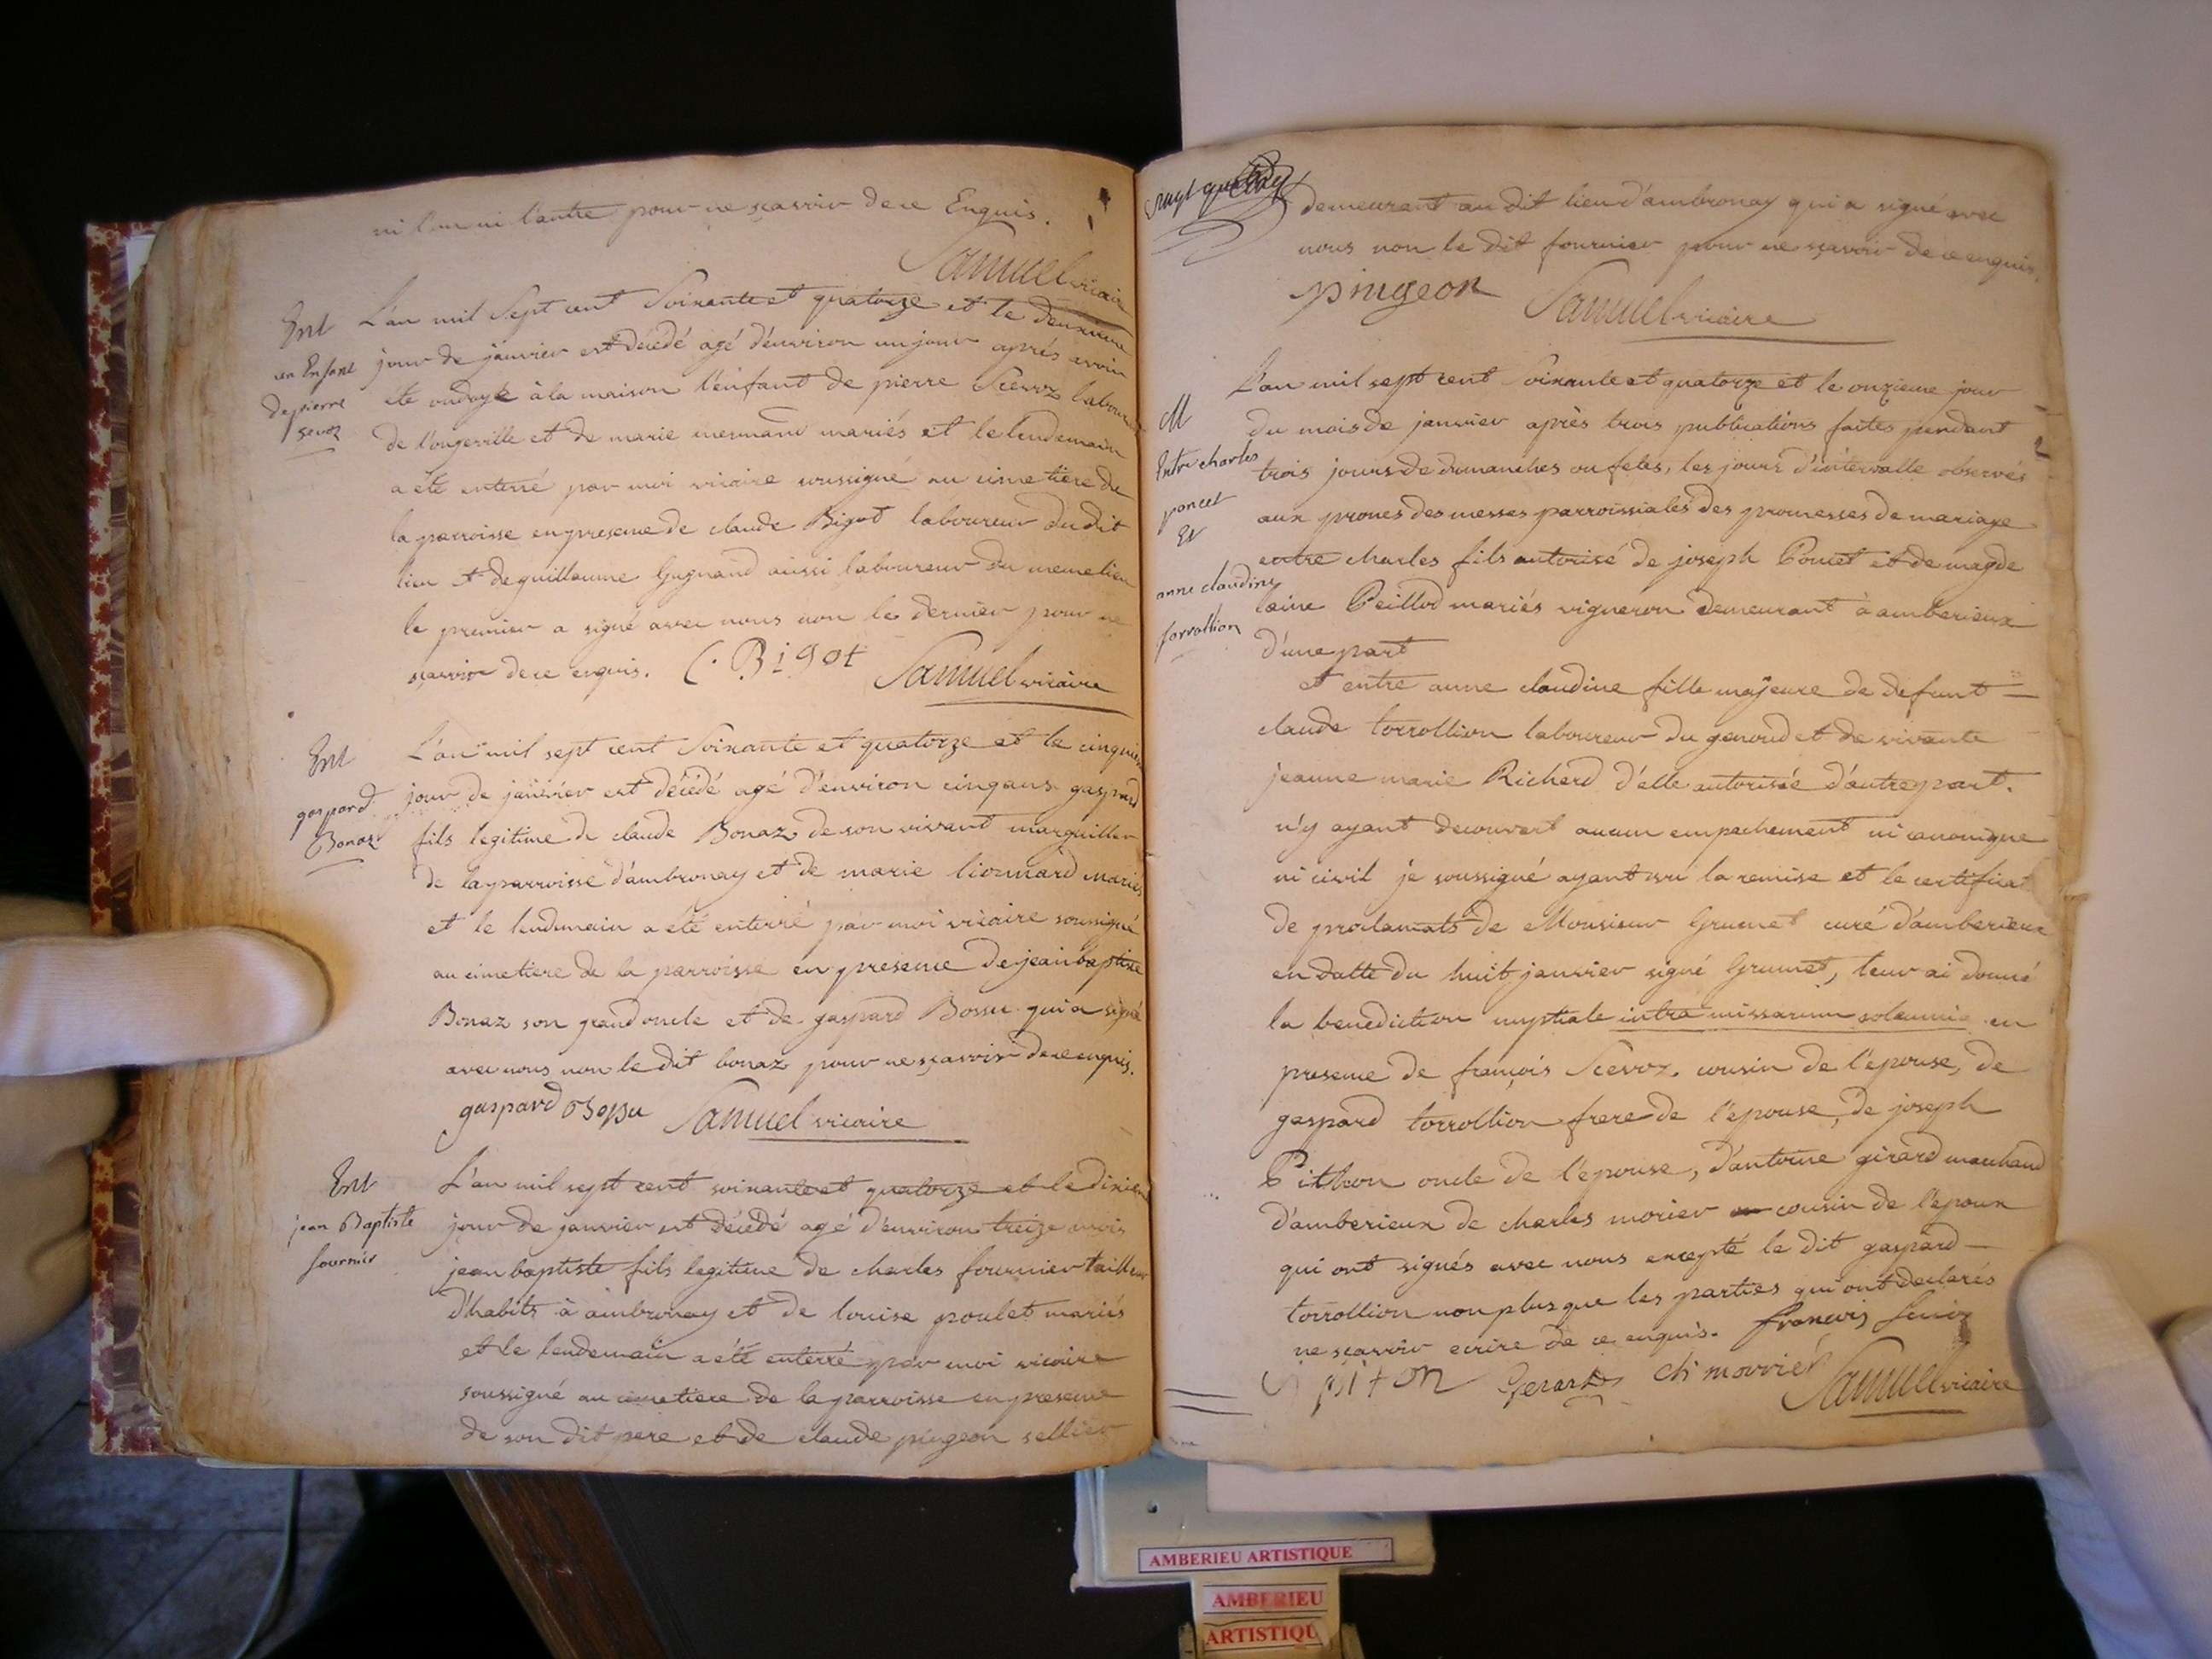 ni l'un ni l'autre pour ne sçavoir de ce Enquis.
Samuel vicaire
Ent
un Enfant
de pierre
sevoz
L'an mil Sept cent Soixante et quatorze et le deuxieme
jour de janvier est décédé agé d'environ un jour aprés avoir
été ondoyé à la maison l'enfant de pierre Scevoz laboureur
de l'ongeville et de marie mermand mariés et le lendemain
a été enterré par moi vicaire soussigné au cimetiere de
la parroisse en presence de claude Bigot laboureur du dit
lieu et de guillaume Gugnand aussi laboureur du meme lieu
le premier a signé avec nous non le dernier pour ne
sçavoir de ce enquis. C. Bigot Samuel vicaire
Ent
gaspard
Bonaz
L'an mil sept cent Soixante et quatorze et le cinquiem
jour de janvier est décédé agé d'environ cinq ans gaspard
fils legitime de claude Bonaz de son vivant marguillier
de la parroisse d'ambronay et de marie lionnard mariés
et le lendemain a été enterré par moi vicaire soussigné
au cimetiere de la parroisse en presence de jean baptiste
Bonaz son grand oncle et de gaspard Bossu qui a signé
avec nous non le dit bonaz pour ne sçavoir de ce enquis.
gaspard Bossu Samuel vicaire
Ent
jean Baptiste
fournier
L'an mil sept cent soixante et quatorze et le dixiem
jour de janvier est décédé agé d'environ treize mois
jean baptiste fils legitime de charles fournier tailleur
d'habits à ambronay et de louise poulet mariés
et le lendemain a été enterré par moi vicaire
soussigné au cimetiere de la parroisse en presence
de son dit pere et de claude pingeon sellier
demeurant au dit lieu d'ambronay qui a signé avec
nous non le dit fournier pour ne sçavoir de ce enquis.
pingeon Samuel vicaire
M
Entre charles
poncet
Et
anne claudine
torrollion
L'an mil sept cent soixante et quatorze et le onzieme jour
du mois de janvier après trois publications faites pendant
trois jours de dimanches ou fetes, les jours d'intervalle observés
aux prones des messes parroissiales des promesses de mariage
entre charles fils autorisé de joseph Poncet et de magde
laine Peillod mariés vigneron demeurant à amberieux
d'une part
et entre anne claudine fille majeure de defunt
claude torrollion laboureur du genoud et de vivante
jeanne marie Richerd d'elle autorisée d'autre part.
n'y ayant decouvert aucun empechement ni canonique
ni civil je soussigné ayant vu la remise et le certificat
de proclamats de Monsieur Grumet curé d'amberieux
en datte du huit janvier signé Grumet, leur ai donné
la benediction nuptiale intra missarum solemnia en
presence de françois Scevoz. cousin de l'épouse, de
gaspard torrollion frere de l'epouse, de joseph
Pithon oncle de l'épouse, d'antoine girard marchand
d'amberieux de charles morier cousin de l'epoux
qui ont signés avec nous excepté le dit gaspard
torrollion non plus que les parties qui ont declarés
ne sçavoir ecrire de ce enquis. francois
piton Gerard Ch morrier Samuel vicaire
AMBERIEU ARTISTIQUE
AMBERIEU
ARTISTIQU